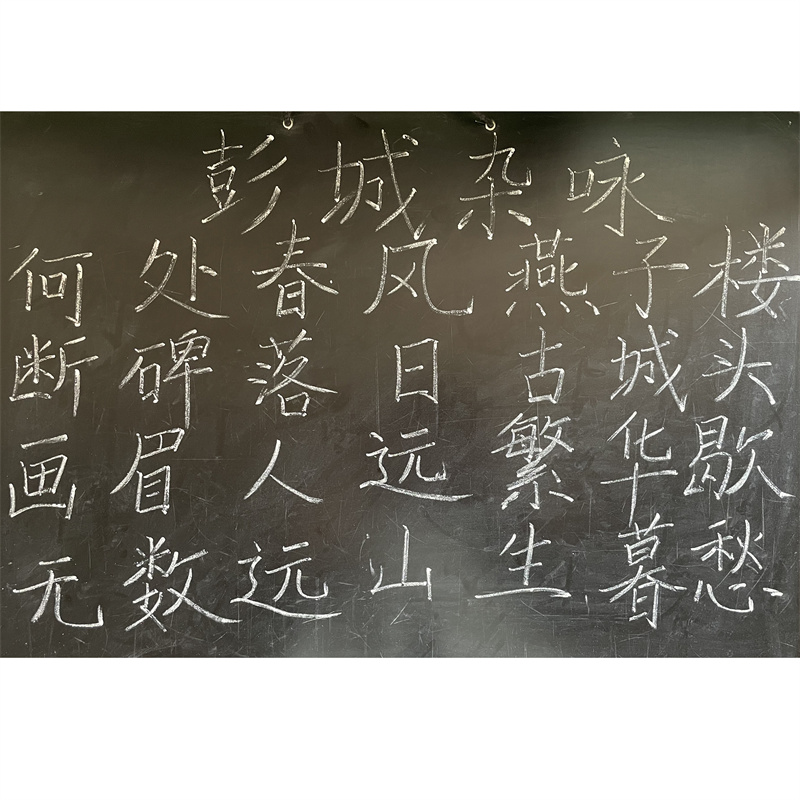 彭城杂咏
何处春风燕子楼
断碑落日古城头
画眉人远繁华歇
无数远山生暮愁